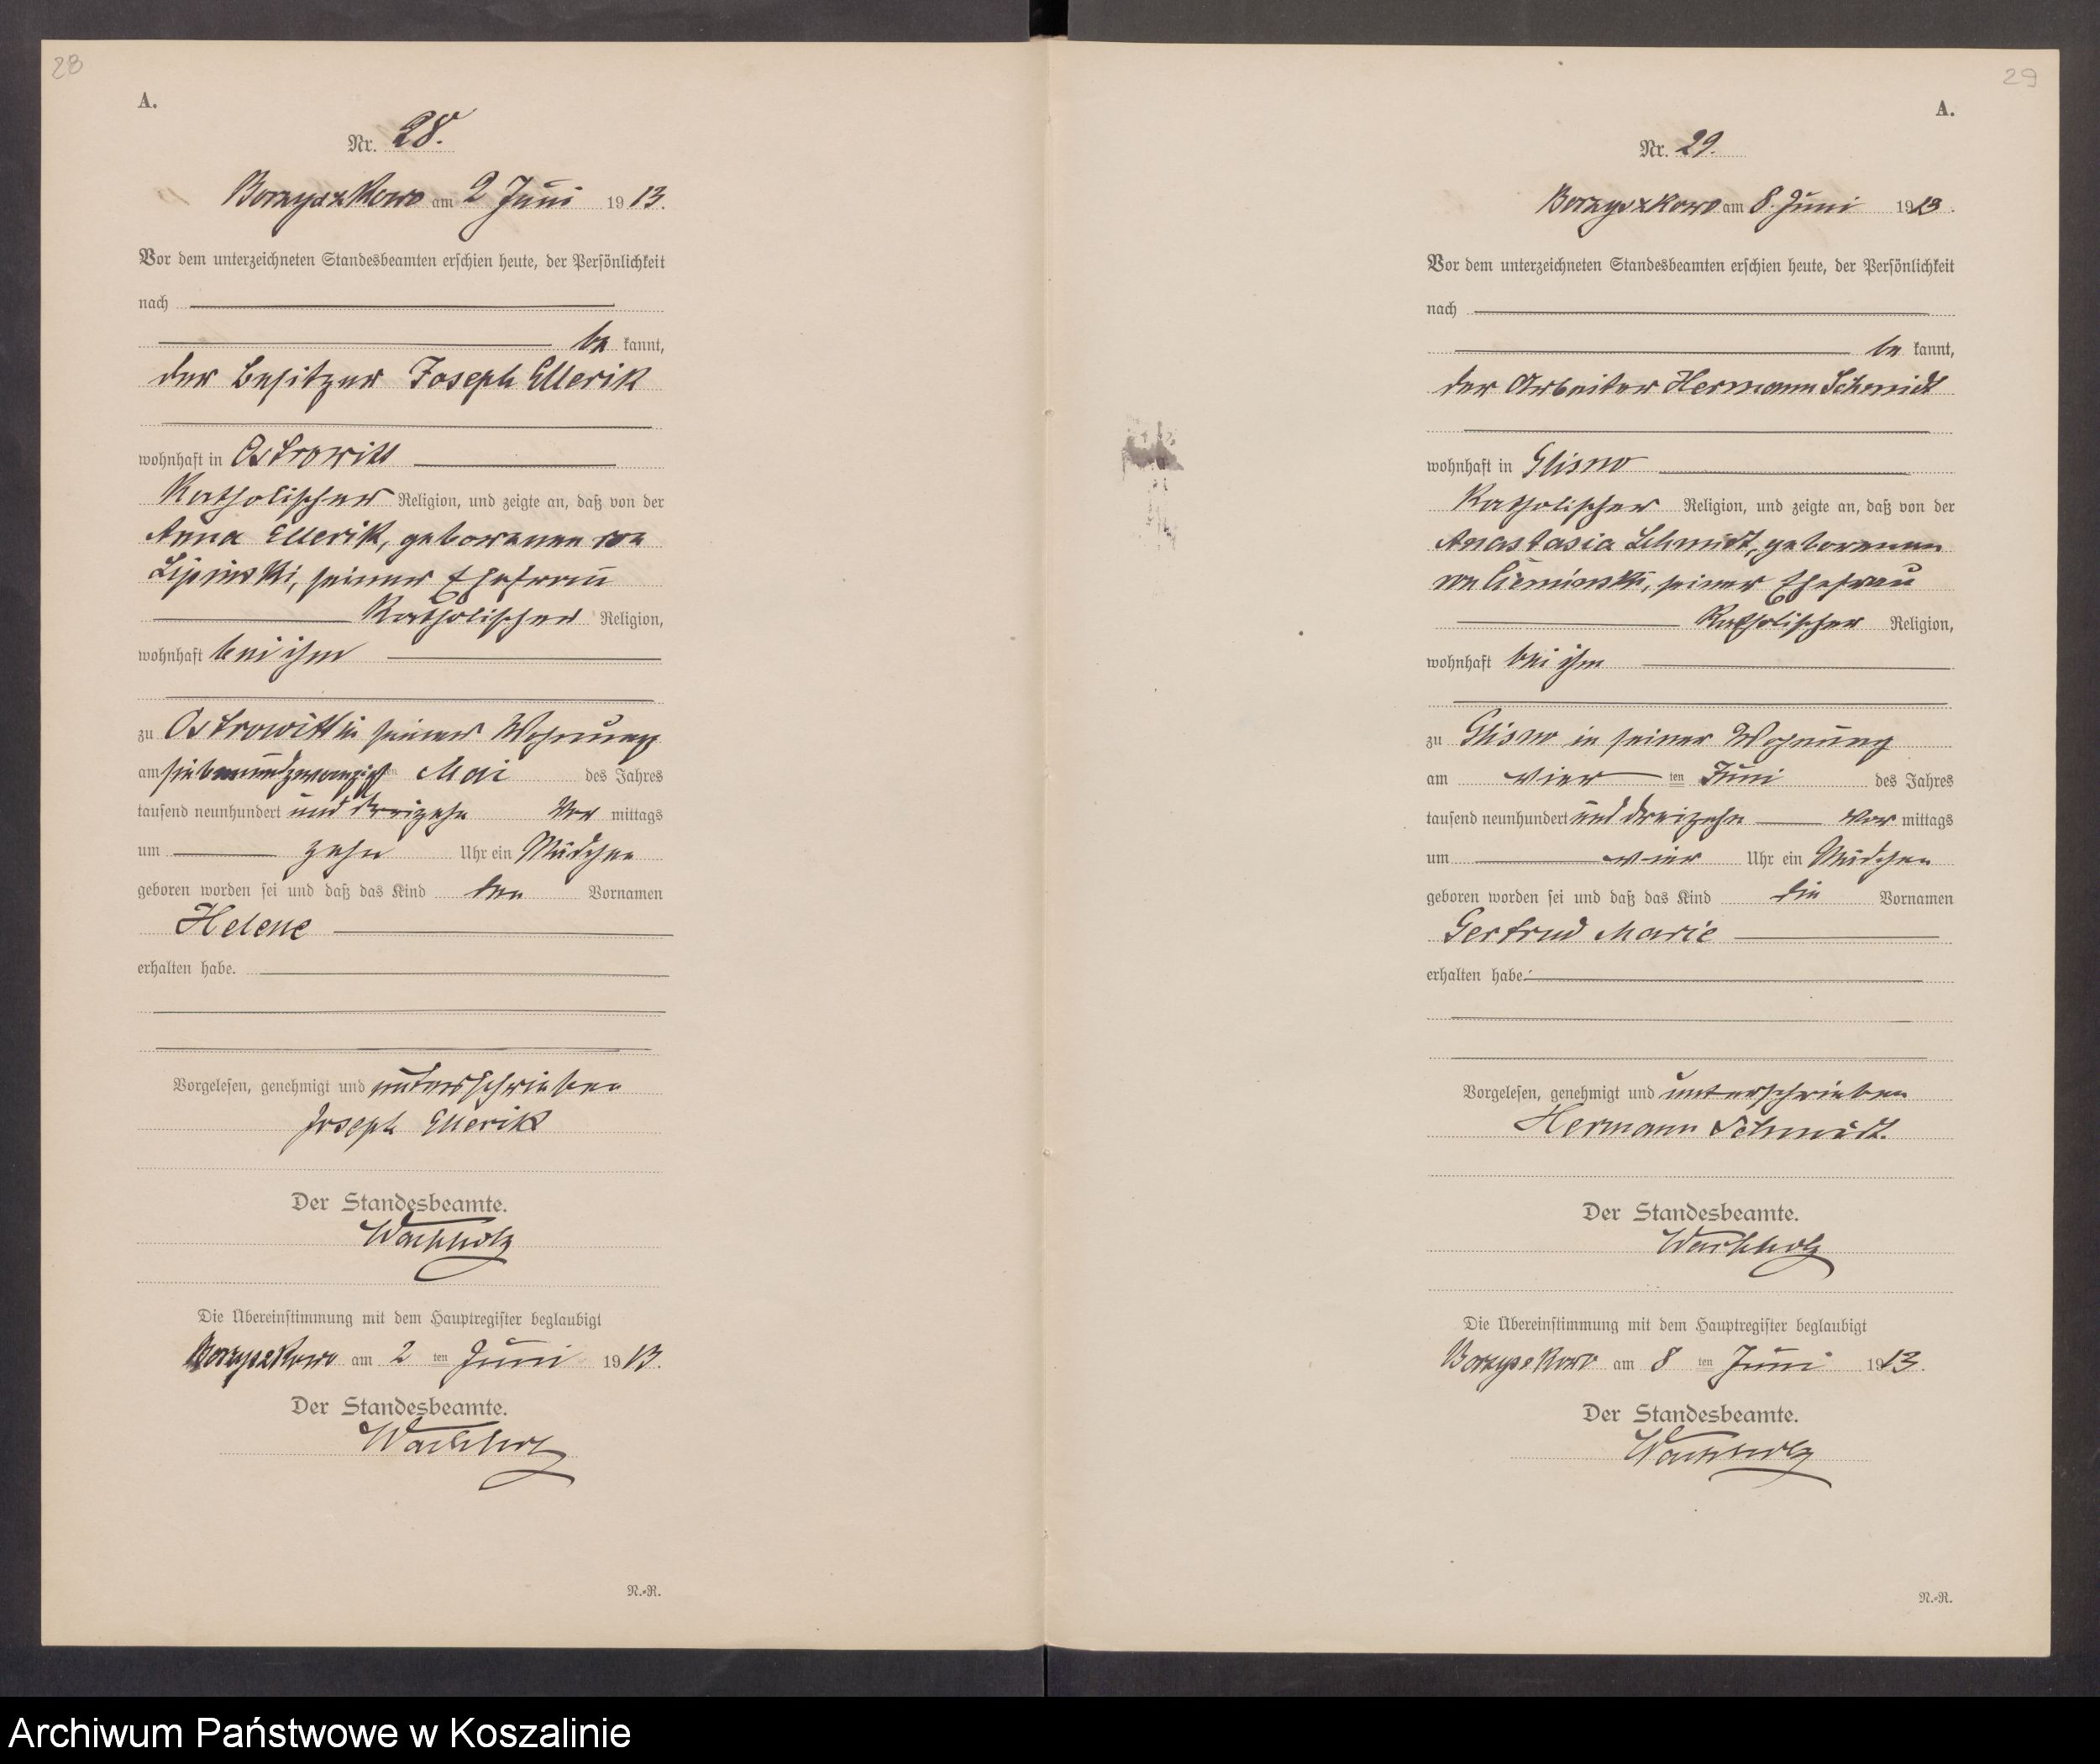 28
A.
Nr. 28.
Borzyszkowo am 2 Juni 1913.
Vor dem unterzeichneten Standesbeamten erschien heute, der Persönlichkeit
nach
be kannt,
der Besitzer Joseph Ellerik
wohnhaft in Ostrowitt
Katholischer Religion, und zeigte an, daß von der
Anna Ellerik, geborenen von
Lipinski, seiner Ehefrau
Katholischer Religion,
wohnhaft bei ihm
zu Ostrowitt in seiner Wohnung
am siebenundzwanzigsten Mai des Jahres
tausend neunhundert und dreizehn Vor mittags
um zehn Uhr ein Mädchen
geboren worden sei und daß das Kind den Vornamen
Helene
erhalten habe.
Vorgelesen, genehmigt und unterschrieben
Joseph Ellerik
Der Standesbeamte.
Wachholz
Die Übereinstimmung mit dem Hauptregister beglaubigt
Borzyszkowo am 2 ten Juni 1913.
Der Standesbeamte.
Wachholz
N.-R.
29
A.
Nr. 29.
Borzyszkowo am 8. Juni 1913.
Vor dem unterzeichneten Standesbeamten erschien heute, der Persönlichkeit
nach
be kannt,
der Arbeiter Hermann Schmidt
wohnhaft in Glisno
Katholischer Religion, und zeigte an, daß von der
Anastasia Schmidt, geborenen
von Cieminski, seiner Ehefrau
Katholischer Religion,
wohnhaft bei ihm
zu Glisno in seiner Wohnung
am vier ten Juni des Jahres
tausend neunhundert und dreizehn vor mittags
um vier Uhr ein Mädchen
geboren worden sei und daß das Kind die Vornamen
Gertrud Marie
erhalten habe.
Vorgelesen, genehmigt und unterschrieben
Hermann Schmidt.
Der Standesbeamte.
Wachholz
Die Übereinstimmung mit dem Hauptregister beglaubigt
Borzyszkowo am 8 ten Juni 1913.
Der Standesbeamte.
Wachholz
N.-R.
Archiwum Państwowe w Koszalinie